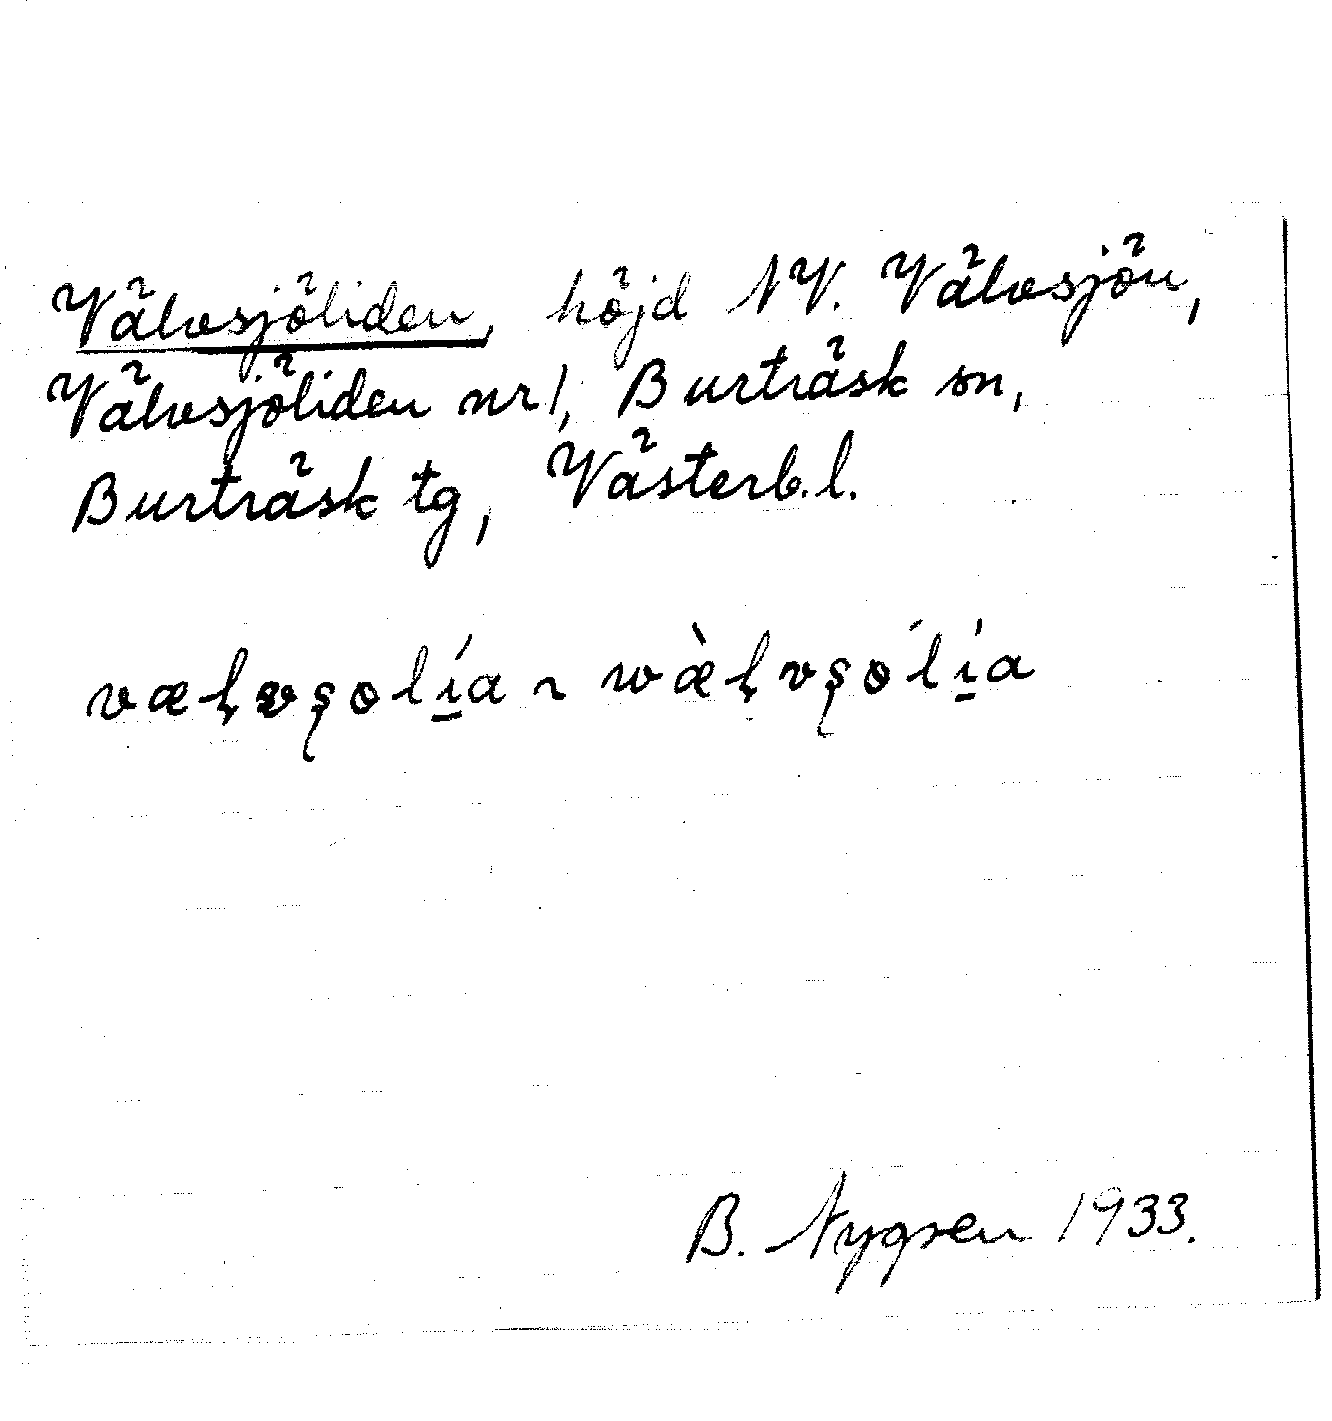 Välvsjöliden, höjd NV. Välvsjön,
Välvsjöliden nr 1, Burträsk sn,
Burträsk tg, Västerb. l.
væḷvşolí̱a ~ wæ̀ḷvşólí̱a
B. Nygren 1933.